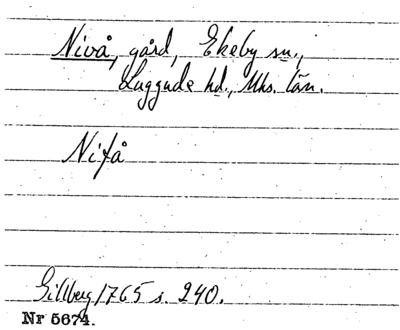 Nivå, gård, Ekeby sn.,
Luggude hd., Mhs. län.
Nifå
Gillberg 1765 s. 240.
Nr 5674.